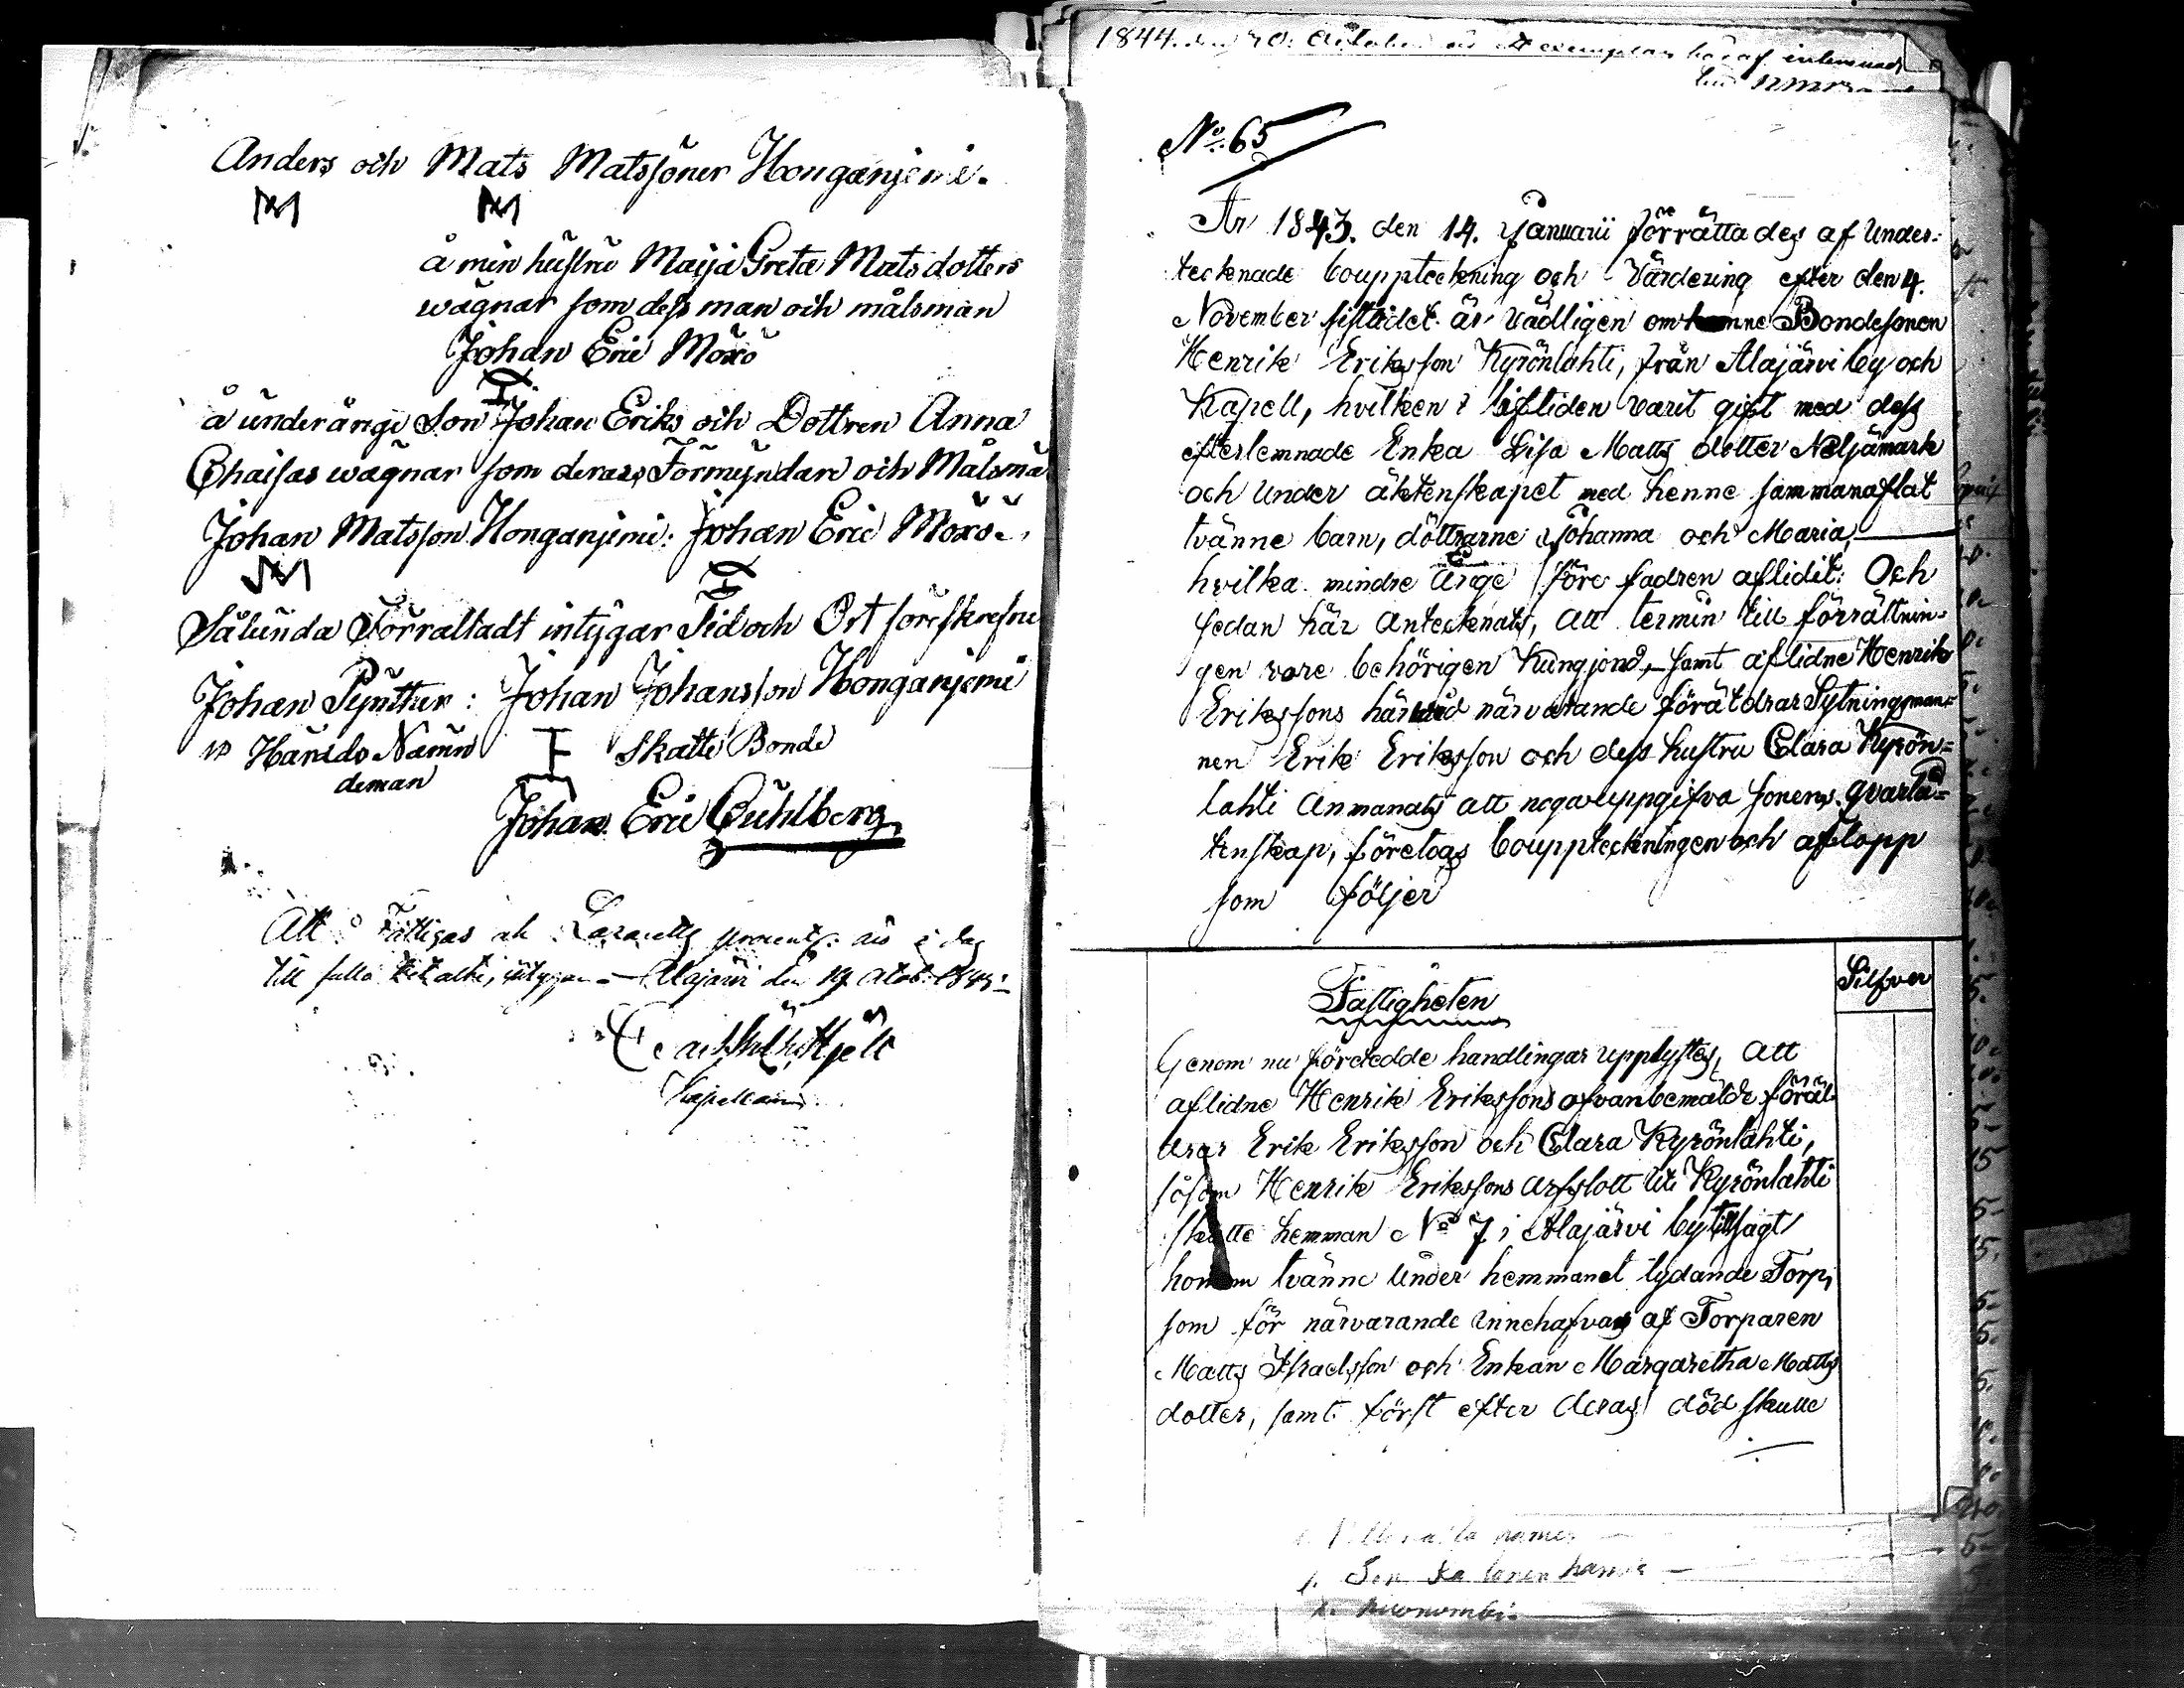 Anders och Mats Matssöner Honganjemi.
å min hustru Maija Greta Matsdotters
wägnar som dess man och målsman
Johan Eric Möxö
å underårige Son Johan Eriks och Dottren Anna
Chaisas wägnar som deras Förmyndare och Målsmä
Johan Matsson Honganjemi: Johan Eric Möxö
Sålunda Förrattadt intygar Tid och Ort föreskrefne
Johan Pynttur: Johan Johansson Honganjemi
Härads Nämn Skatte Bonde
deman
Johan Eric Cuhlberg
Att Fattigas och Lazaretts procent är i dag
till fullo betalte, intygar - Alajärvi den 19 Octob: 1843
Hjelt
Kapellan
1844. den 20. October ett exemplar häraf inlemnadt
No. 65
År 1843. den 14. Januarii förrättades af Under-
tecknade bouppteckning och Värdering efter den 4.
November sistlidet år vådligen omkomne Bondesonen
Henrik Eriksson Kyrönlahti, från Alajärvi by och
Kapell, hvilken i lifstiden varit gift med dess
efterlemnade Enka Lisa Matts dotter Neljämark
och under äktenskapet med henne sammanaflat
tvänne barn, döttrarne Johanna och Maria,
hvilka mindre årige före fadren aflidit: Och
sedan här antecknats, att termin till förrättnin-
gen vore behörigen kungjord, samt aflidne Henrik
Erikssons härvid närvarande föräldrar Sytningsman-
nen Erik Eriksson och dess hustru Clara Kyrön=
lahti anmanats att noga uppgifva sonens qvarlå=
tenskap, företogs bouppteckningen och aflopp
som följer
Silfver
Fastigheten
Genom nu företedde handlingar upplystes, att
aflidne Henrik Erikssons ofvanbemälde föräl-
drar Erik Eriksson och Clara Kyrönlahti,
såsom Henrik Erikssons arfslott uti Kyrönlahti
skatte hemman No 7 i Alajärvi by tillsagt
honom tvänne under hemmanet lydande Torp,
som för närvarande innehafvas af Torparen
Matts Israelsson och Enkan Margaretha Matts
dotter, samt först efter deras död skulle